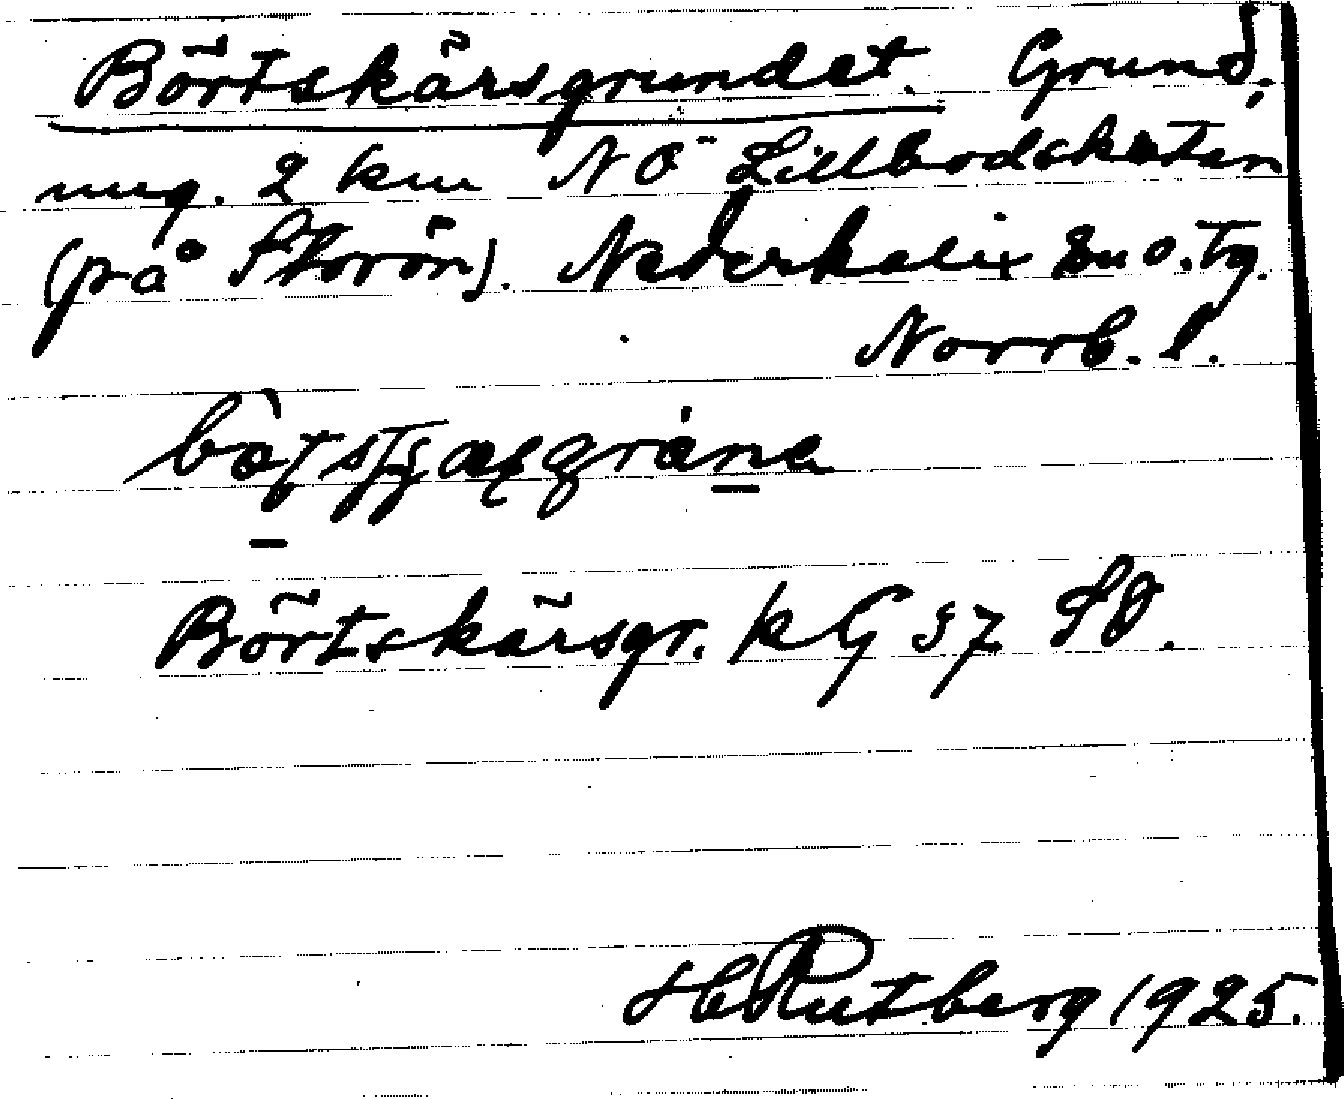 Börtskärsgrundet. Grund,
ung. 2 km NÖ Lillbodskatan
(på Storön). Nederkalix sn o. tg.
Norrb. l.
Börtskärsgr. kG 37 SO.
H Rutberg 1925.